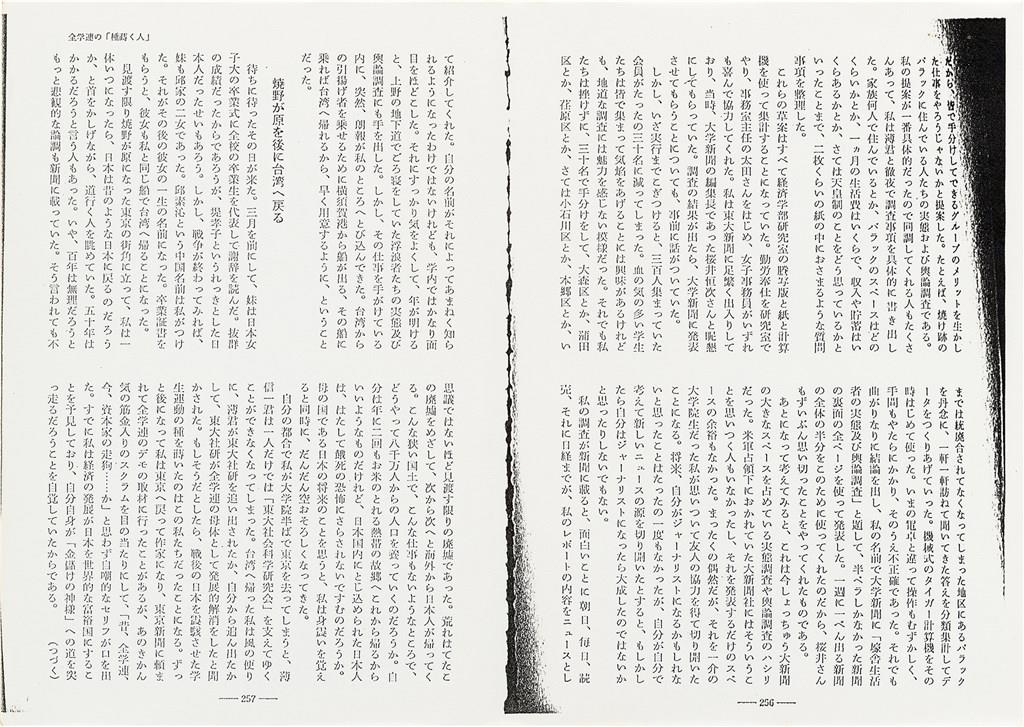 だから、皆で手分けしてできるグループのメリットを生かし
た仕事をやろうじゃないかと提案した。たとえば、焼け跡の
バラックに住んでいる人たちの実態および輿論調査である。
私の提案が一番具体的だったので同調してくれる人もたくさ
んあって、私は薄君と徹夜で調査事項を具体的に書き出し
た。家族何人で住んでいるとか、バラックのスペースはどの
くらいかとか、一ヵ月の生活費はいくらで、収入や貯蓄はい
くらあるかとか、さては天皇制のことをどう思っているかと
いったことまで、二枚くらいの紙の中におさまるような質問
事項を整理した。
これらの草案はすべて経済学部研究室の謄写版と紙と計算
機を使って集計することになっていた。勤労奉仕を研究室で
やり、事務室主任の太田さんをはじめ、女子事務員がいずれ
も喜んで協力してくれた。私は東大新聞に足繁く出入りして
おり、当時、大学新聞の編集長であった桜井恒次さんと昵懇
にしてもらっていた。調査の結果が出たら、大学新聞に発表
させてもらうことについても、事前に話がついていた。
しかし、いざ発行までこぎつけると、三百人集まっていた
会員がたったの三十名に減ってしまった。血の気の多い学生
たちは皆で集まって気焰をあげることには興味があるけれど
も、地道な調査には魅力を感じない模様だった。それでも私
たちは挫けずに、三十名で手分けをして、大森区とか、蒲田
区とか、荏原区とか、さては小石川区とか、本郷区とか、い
までは統廃合されてなくなってしまった地区にあるバラック
を丹念に、一軒一軒訪ねて聞いてきた答えを分類集計してデ
ータをつくりあげていった。機械式のタイガー計算機をその
時はじめて使った。いまの電卓と違って操作もむずかしく、
手間もやたらにかかり、そのうえ不正確であった。それでも
曲がりなりに結論を出し、私の名前で大学新聞に「壕舎生活
者の実態及び輿論調査」と題して、半ペラしかなかった新聞
の裏面の全ページを使って発表した。一週に一ぺん出る新聞
の全体の半分をこのために使ってくれたのだから、桜井さん
もずいぶん思い切ったことをやってくれたものである。
あとになって考えてみると、これは今しょっちゅう大新聞
の大きなスペースを占めている実態調査や輿論調査のハシリ
だった。米軍占領下におかれていた大新聞社にはそういうこ
とを思いつく人もいなかったし、それを発表するだけのスペ
ースの余裕もなかった。まったくの偶然だが、それを一介の
大学院生だった私が思いついて友人の協力を得て切り開いた
ことになる。将来、自分がジャーナリストになるかもしれな
いと思ったことはたったの一度もなかったが、自分が自分で
考えて新しいニュースの源を切り開いたとすると、もしかし
たら自分はジャーナリストになったら大成したのではないか
と思ったりしないでもない。
私の調査が新聞に載ると、面白いことに朝日、毎日、読
売、それに日経までが、私のレポートの内容をニュースとし
— 256 —
全学連の「種蒔く人」
て紹介してくれた。自分の名前がそれによってあまねく知ら
れるようになったわけではないけれども、学内ではかなり面
目をほどこした。それにすっかり気をよくして、年が明ける
と、上野の地下道でごろ寝をしていた浮浪者たちの実態及び
輿論調査にも手を出した。しかし、その仕事を手がけている
内に、突然、朗報が私のところへとび込んできた。台湾から
の引揚げ者を乗せるために横須賀港から船が出る、その船に
乗れば台湾へ帰れるから、早く用意するように、ということ
だった。
焼野が原を後に台湾へ戻る
待ちに待ったその日が来た。三月を前にして、妹は日本女
子大の卒業式に全校の卒業生を代表して謝辞を読んだ。抜群
の成績だったからであろうが、堤孝子というれっきとした日
本人だったせいもあろう。しかし、戦争が終わってみれば、
妹も邱家の二女であった。邱素沁という中国名前は私がつけ
た。それがその後の彼女の一生の名前になった。卒業証書を
もらうと、彼女も私と同じ船で台湾へ帰ることになった。
見渡す限り焼野が原になった東京の街角に立って、私は一
体いつになったら、日本は昔のような日本に戻るのだろう
か、と首をかしげながら、道行く人を眺めていた。五十年は
かかるだろうと言う人もあった。いや、百年は無理だろうと
もっと悲観的な論調も新聞に載っていた。そう言われても不
思議ではないほど見渡す限りの廃墟であった。荒れはてたこ
の廃墟をめざして、次から次へと海外から日本人が帰ってく
る。こんな狭い国土で、こんな仕事もないようなところで、
どうやって八千万人からの人口を養っていくのだろうか。自
分は年に二回もお米のとれる熱帯の故郷へこれから帰るから
いいようなものだけれど、日本国内にとじ込められた日本人
は、はたして餓死の恐怖にさらされないですむのだろうか。
母の国である日本の将来のことを思うと、私は身震いを覚え
ると同時に、だんだん空おそろしくなってきた。
自分の都合で私が大学院半ばで東京を去ってしまうと、薄
信一君は一人だけでは「東大社会科学研究会」を支えてゆく
ことができなくなってしまった。台湾へ帰った私は風の便り
に、薄君が東大社研を追い出されたか、自分から追い出たか
して、東大社研が全学連の母体として発展的解消をしたと聞
かされた。もしそうだとしたら、戦後の日本を震駭させた学
生運動の種を蒔いたのはこの私たちだったことになる。ずっ
と後になって私は東京へ戻って作家になり、東京新聞に頼ま
れて全学連のデモの取材に行ったことがあるが、あのきかん
気の筋金入りのスクラムを目の当たりにして、「昔、全学連、
今、資本家の走狗……か」と思わず自嘲的なセリフが口を出
た。すでに私は経済の発展が日本を世界的な富裕国にするこ
とを予見しており、自分自身が「金儲けの神様」への道を突
っ走るだろうことを自覚していたからである。 （つづく）
— 257 —